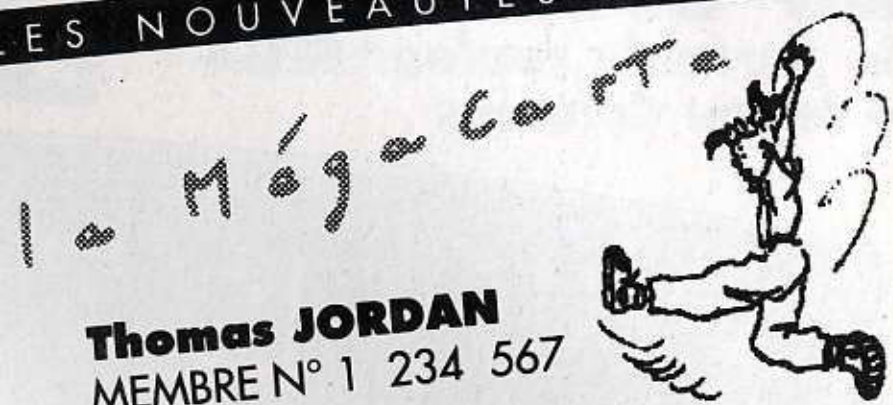 LES NOUVEAUTES
la MégaCarTe
Thomas JORDAN
MEMBRE N° 1 234 567